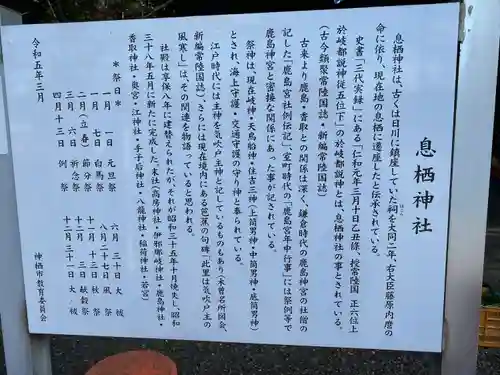 息栖神社
息栖神社は、古くは日川に鎮座していた祠を大同二年、右大臣藤原内麿の
ほこら
命に依り、現在地の息栖に遷座したと伝承されている。
史書「三代実録」にある「仁和元年三月十日乙丑條、授常陸国 正六位上
於岐都説神従五位下」の於岐都説神とは、息栖神社の事とされている。
(古今類聚常陸国誌・新編常陸国誌)
古来より鹿島・香取との関係は深く、鎌倉時代の鹿島神宮の社僧の
記した「鹿島宮社例伝記」、室町時代の「鹿島宮年中行事」には祭例等で
鹿島神宮と密接な関係にあった事が記されている。
祭神は現在岐神・天鳥船神・住吉三神(上筒男神・中筒男神・底筒男神)
とされ、海上守護・交通守護の守り神と奉られている。
江戸時代には主神を気吹戸主神と記しているものもあり(木曽名所図会、
新編常陸国誌)、さらには現在境内にある芭蕉の句碑「此里は気吹戸主の
風寒し」は、その関連を物語っていると思われる。
社殿は享保八年に建替えられたが、それが昭和三十五年十月焼失し、昭和
三十八年五月に新たに完成した。末社(高房神社・伊邪那岐神社・鹿島神社・
香取神社・奥宮・江神社・手子后神社・八龍神社・稲荷神社・若宮)
*祭日*
一月 一日 元旦祭
一月 七日 白馬祭
二月(立春) 節分祭
三月 六日 祈念祭
四月十三日 例祭
六月 三十日 大祓
八月二十七日 風祭
十一月 十三日 秋祭
十二月 三日 献穀祭
十二月 三十一日 大祓
令和五年三月
神栖市教育委員会